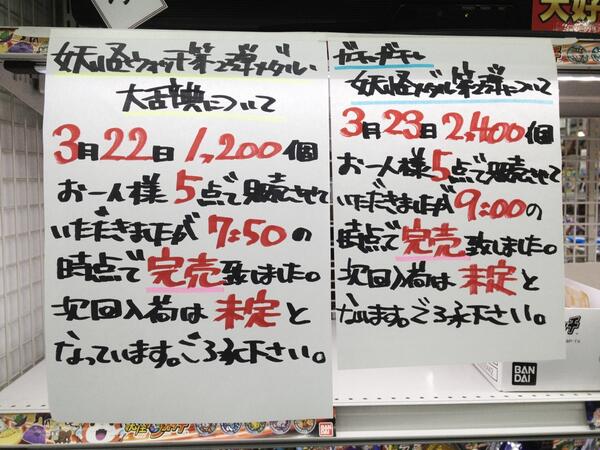 妖怪ウォッチ第2弾メダル
大乱舞について
3月22日 1,200個
お一人様5点で販売させて
いただきましたが7:50の
時点で完売致しました。
次回入荷は未定と
なっています。ご了承下さい。
ガシャガシャ
妖怪メダル第2弾について
3月23日 2,400個
お一人様5点で販売させて
いただきましたが9:00の
時点で完売致しました。
次回入荷は未定と
なります。ご了承下さい。
BAN
DAI
妖怪ウォッチ
BAN
DAI
大好